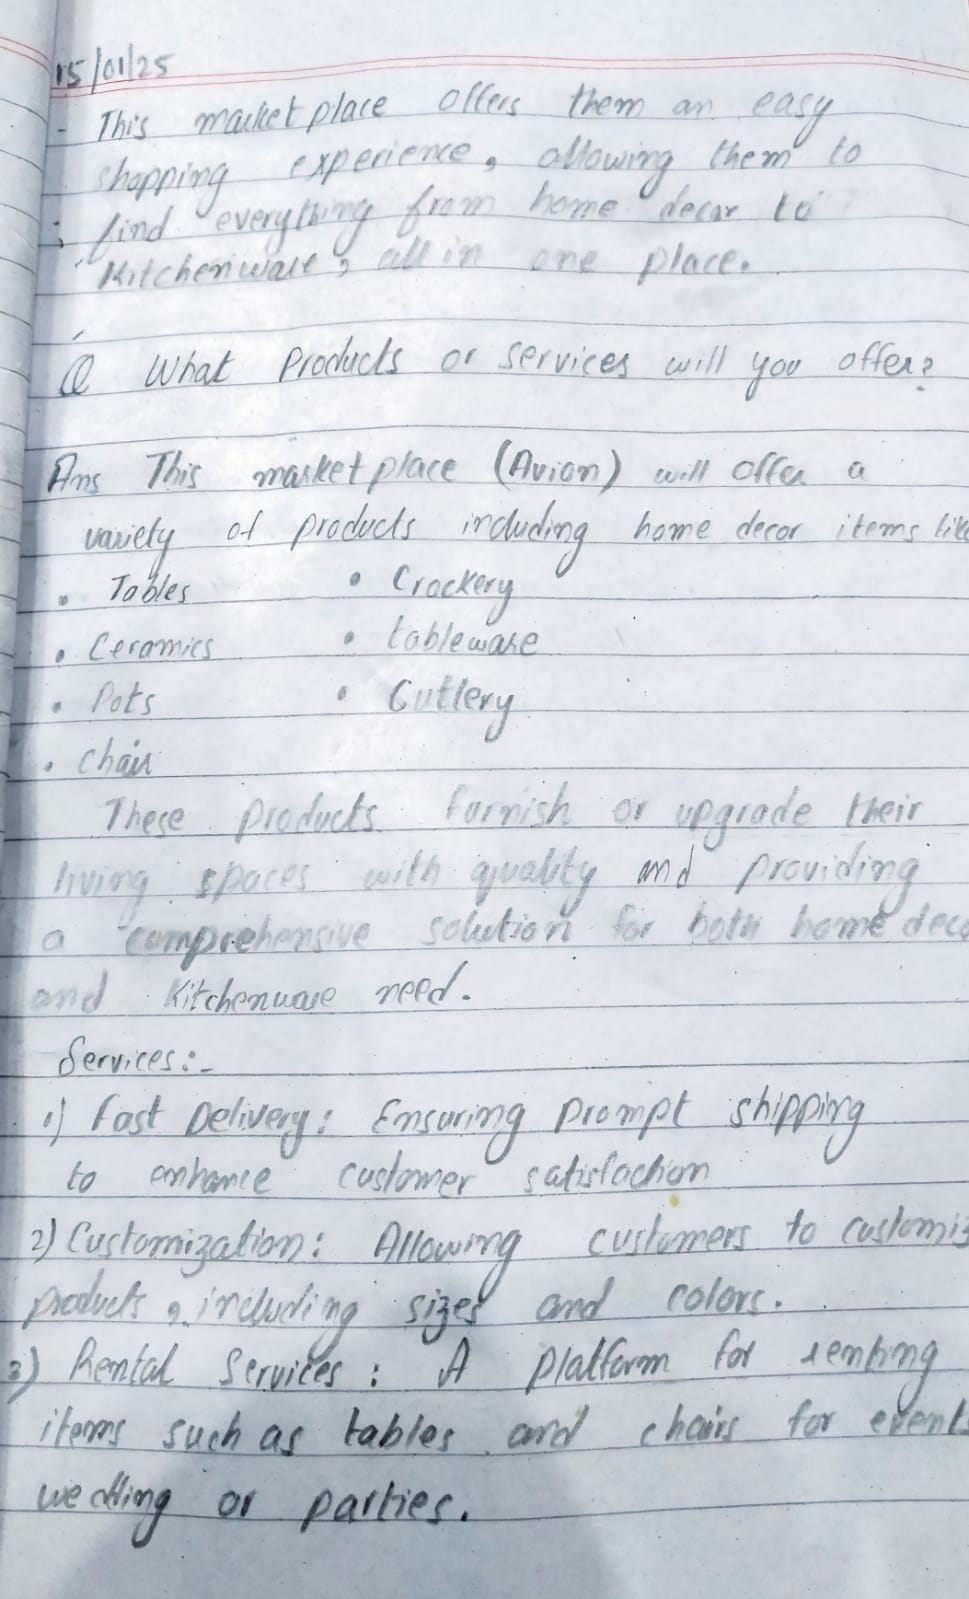 15/01/25
- This marketplace offers them an easy
shopping experience, allowing them to
find everything from home decor to
Kitchenware, all in one place.
Q What Products or services will you offer?
Ans This marketplace (Avion) will offer a
variety of products including home decor items like
• Tables • Crockery
• Ceramics • tableware
• Pots • Cutlery
• Chair
These products furnish or upgrade their
living spaces with quality and providing
a comprehensive solution for both home deco
and Kitchenware need.
Services:-
1) Fast Delivery: Ensuring prompt shipping
to enhance customer satisfaction
2) Customization: Allowing customers to customiz
products, including sizes and colors.
3) Rental Services: A Platform for renting
items such as tables and chairs for events
wedding or parties.